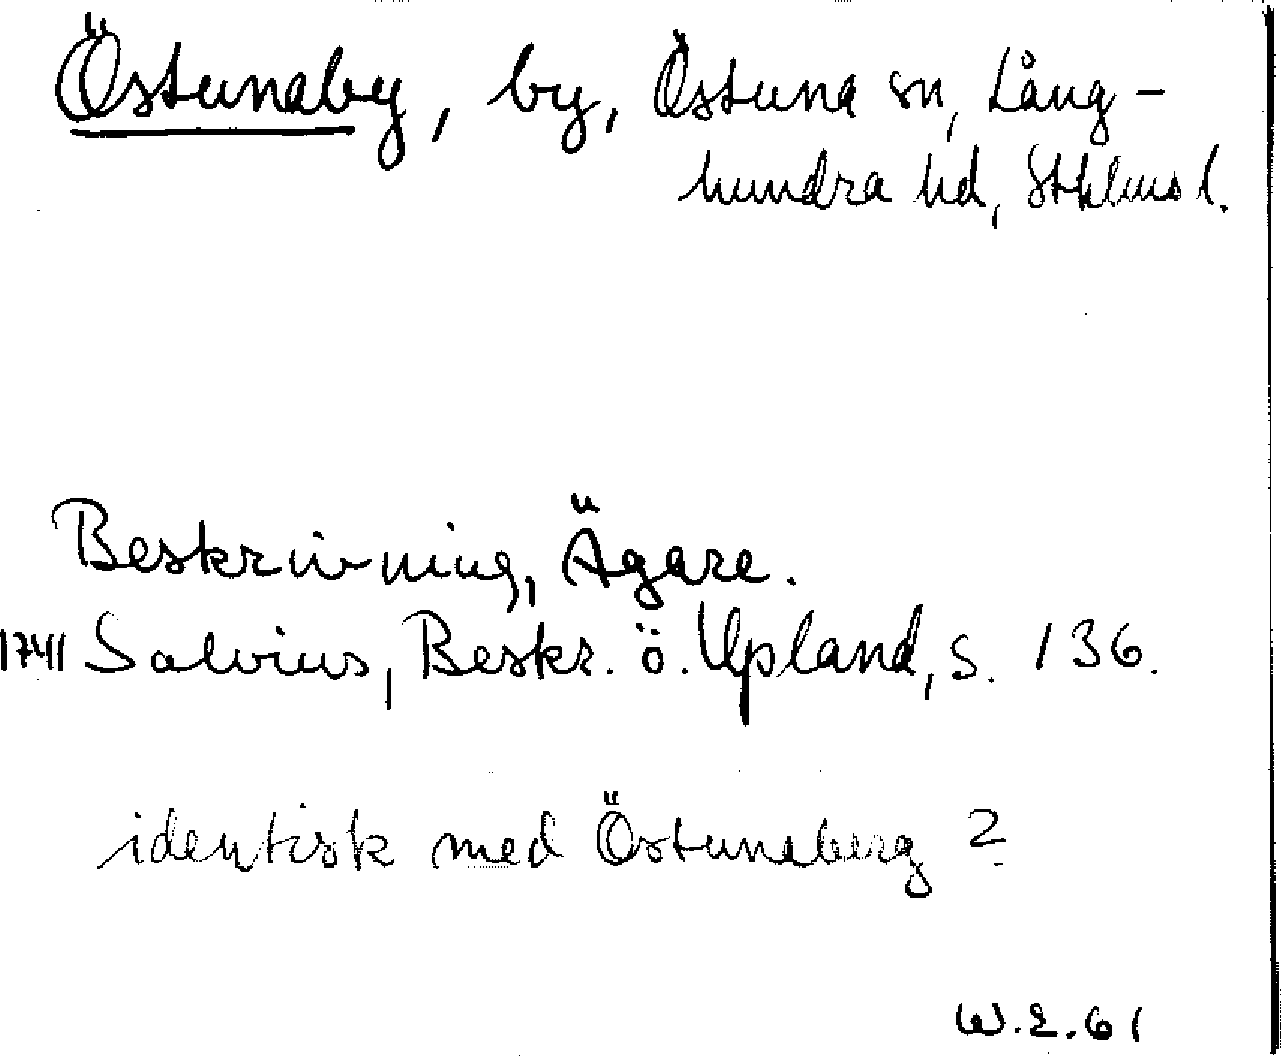 Östunaby, by, Östuna sn, Lång-
hundra hd, Sthlms l.
Beskrivning, Ägare.
1741 Salvius, Beskr. ö. Upland, s. 136.
identisk med Östunaberg?
W.E.61